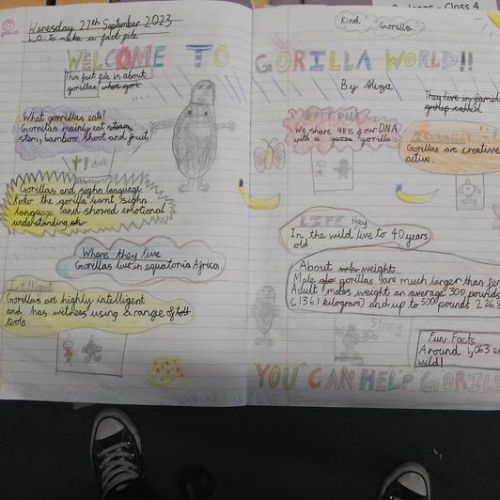 Wenesday 27th September 2023
LO: to make a fact file
WELCOME TO
This fact file is about
gorillas
What gorillas eat!
Gorrillas mainly eat steam,
stem, bamboo shoot and fruit
Gorillas and sighn language
Koko the gorilla learnt sighn
language and showed emotional
understanding
Where they live
Gorillas live in equatoria Africa
Gorillas are highly intelligent
and has witness using a range of
tools
Class 4
Kind Gorilla
GORILLA WORLD!!
By Aliza
They live in famil
group called
DNA
We share 98% of our DNA
with a gorilla
Gorillas are creative
active.
LIFE they
In the wild live to 40 years
old
About weight
Male gorillas are much larger than fe
Adult males weight an average 300 pounds
(136.1 kilogram) and up to 500 pounds 226.8
Fun Facts
Around 1,063 
wild!
YOU CAN HELP GORIL